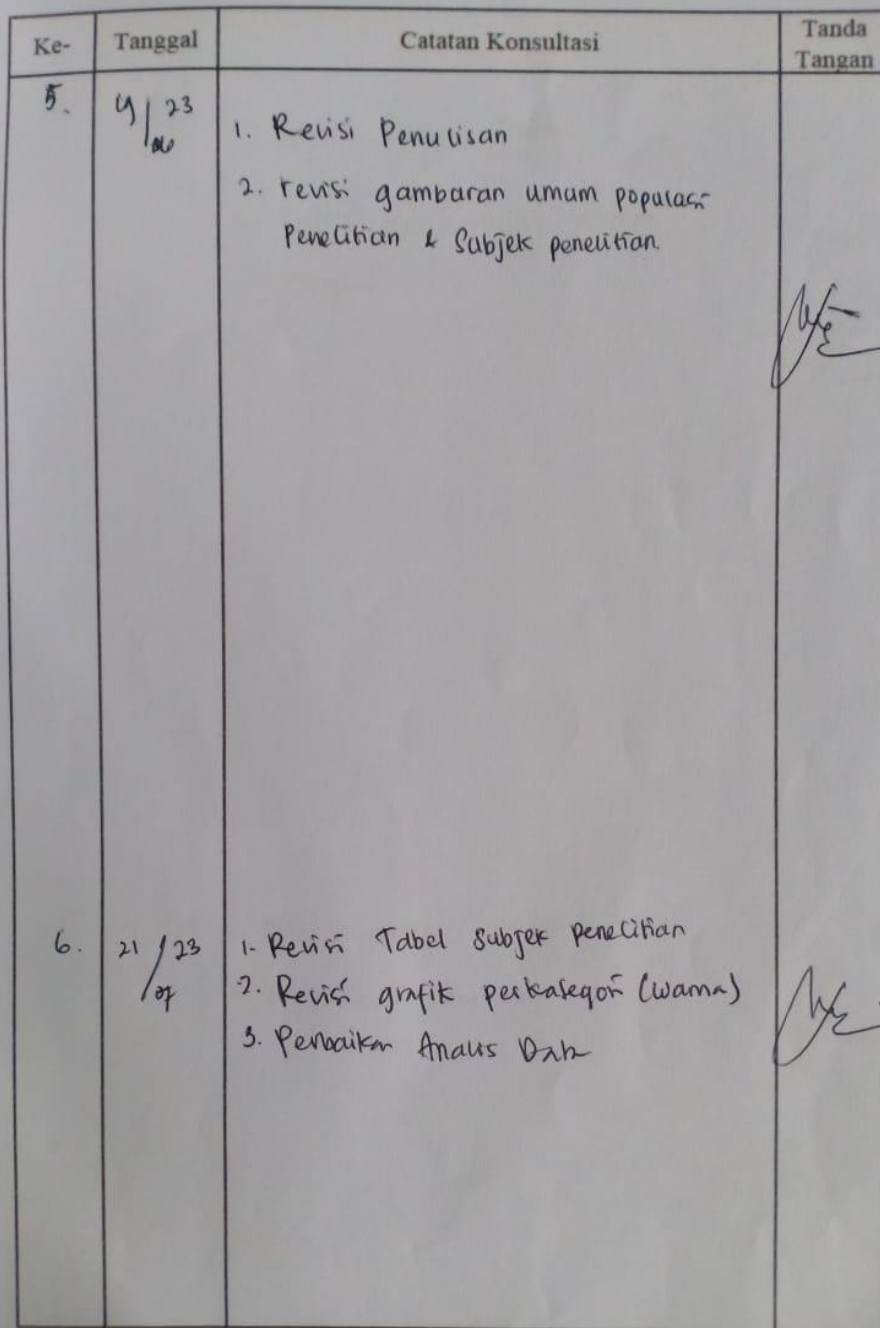 Ke- Tanggal Catatan Konsultasi Tanda Tangan
5. 23 1. Revisi Penulisan
2. revisi gambaran umum populasi
Penelitian & Subjek penelitian
6. 21/07 23 1. Revisi Tabel Subjek penelitian
2. Revisi grafik perkategori (warna)
3. Perbaikan Analis Data